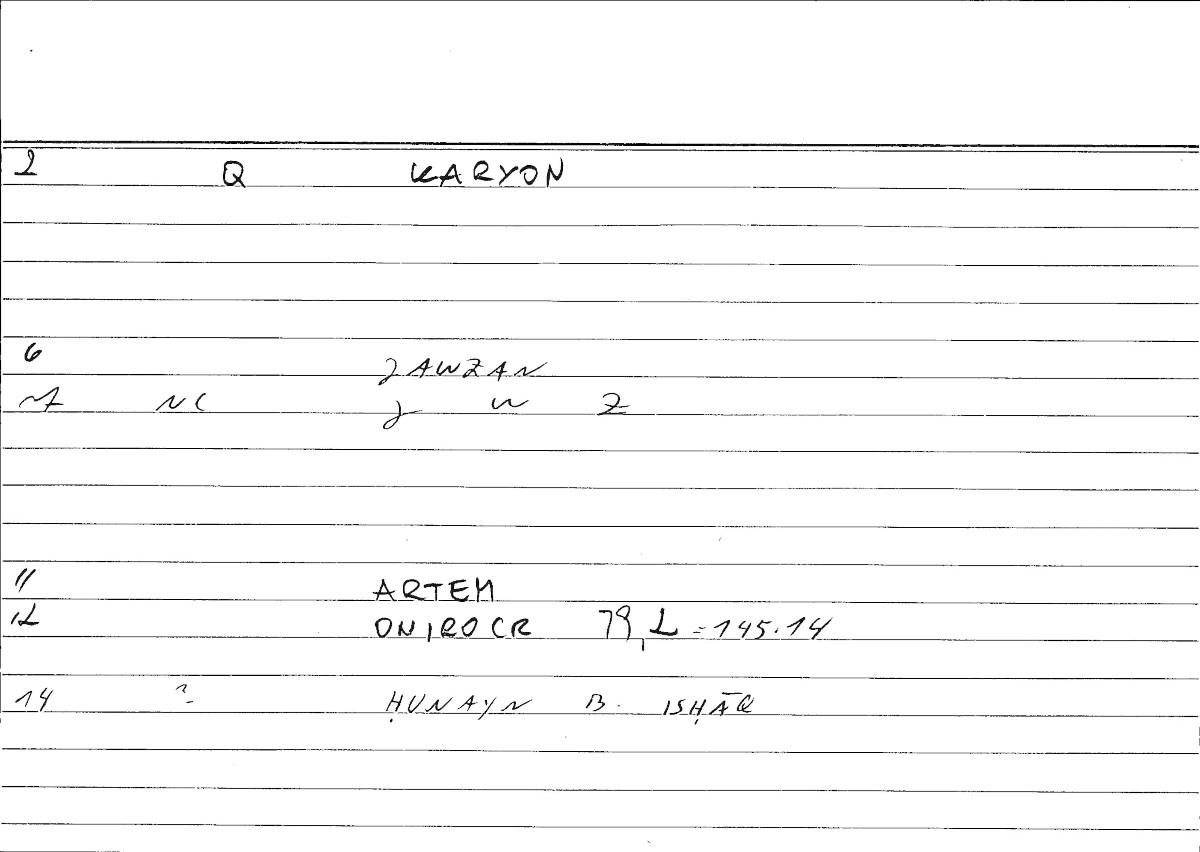 2 Q KARYON
6 JAWZAN
7 NC J W Z
11 ARTEM
12 ONIROCR 79,2 = 145.14
14 ? ḤUNAYN B. ISḤĀQ